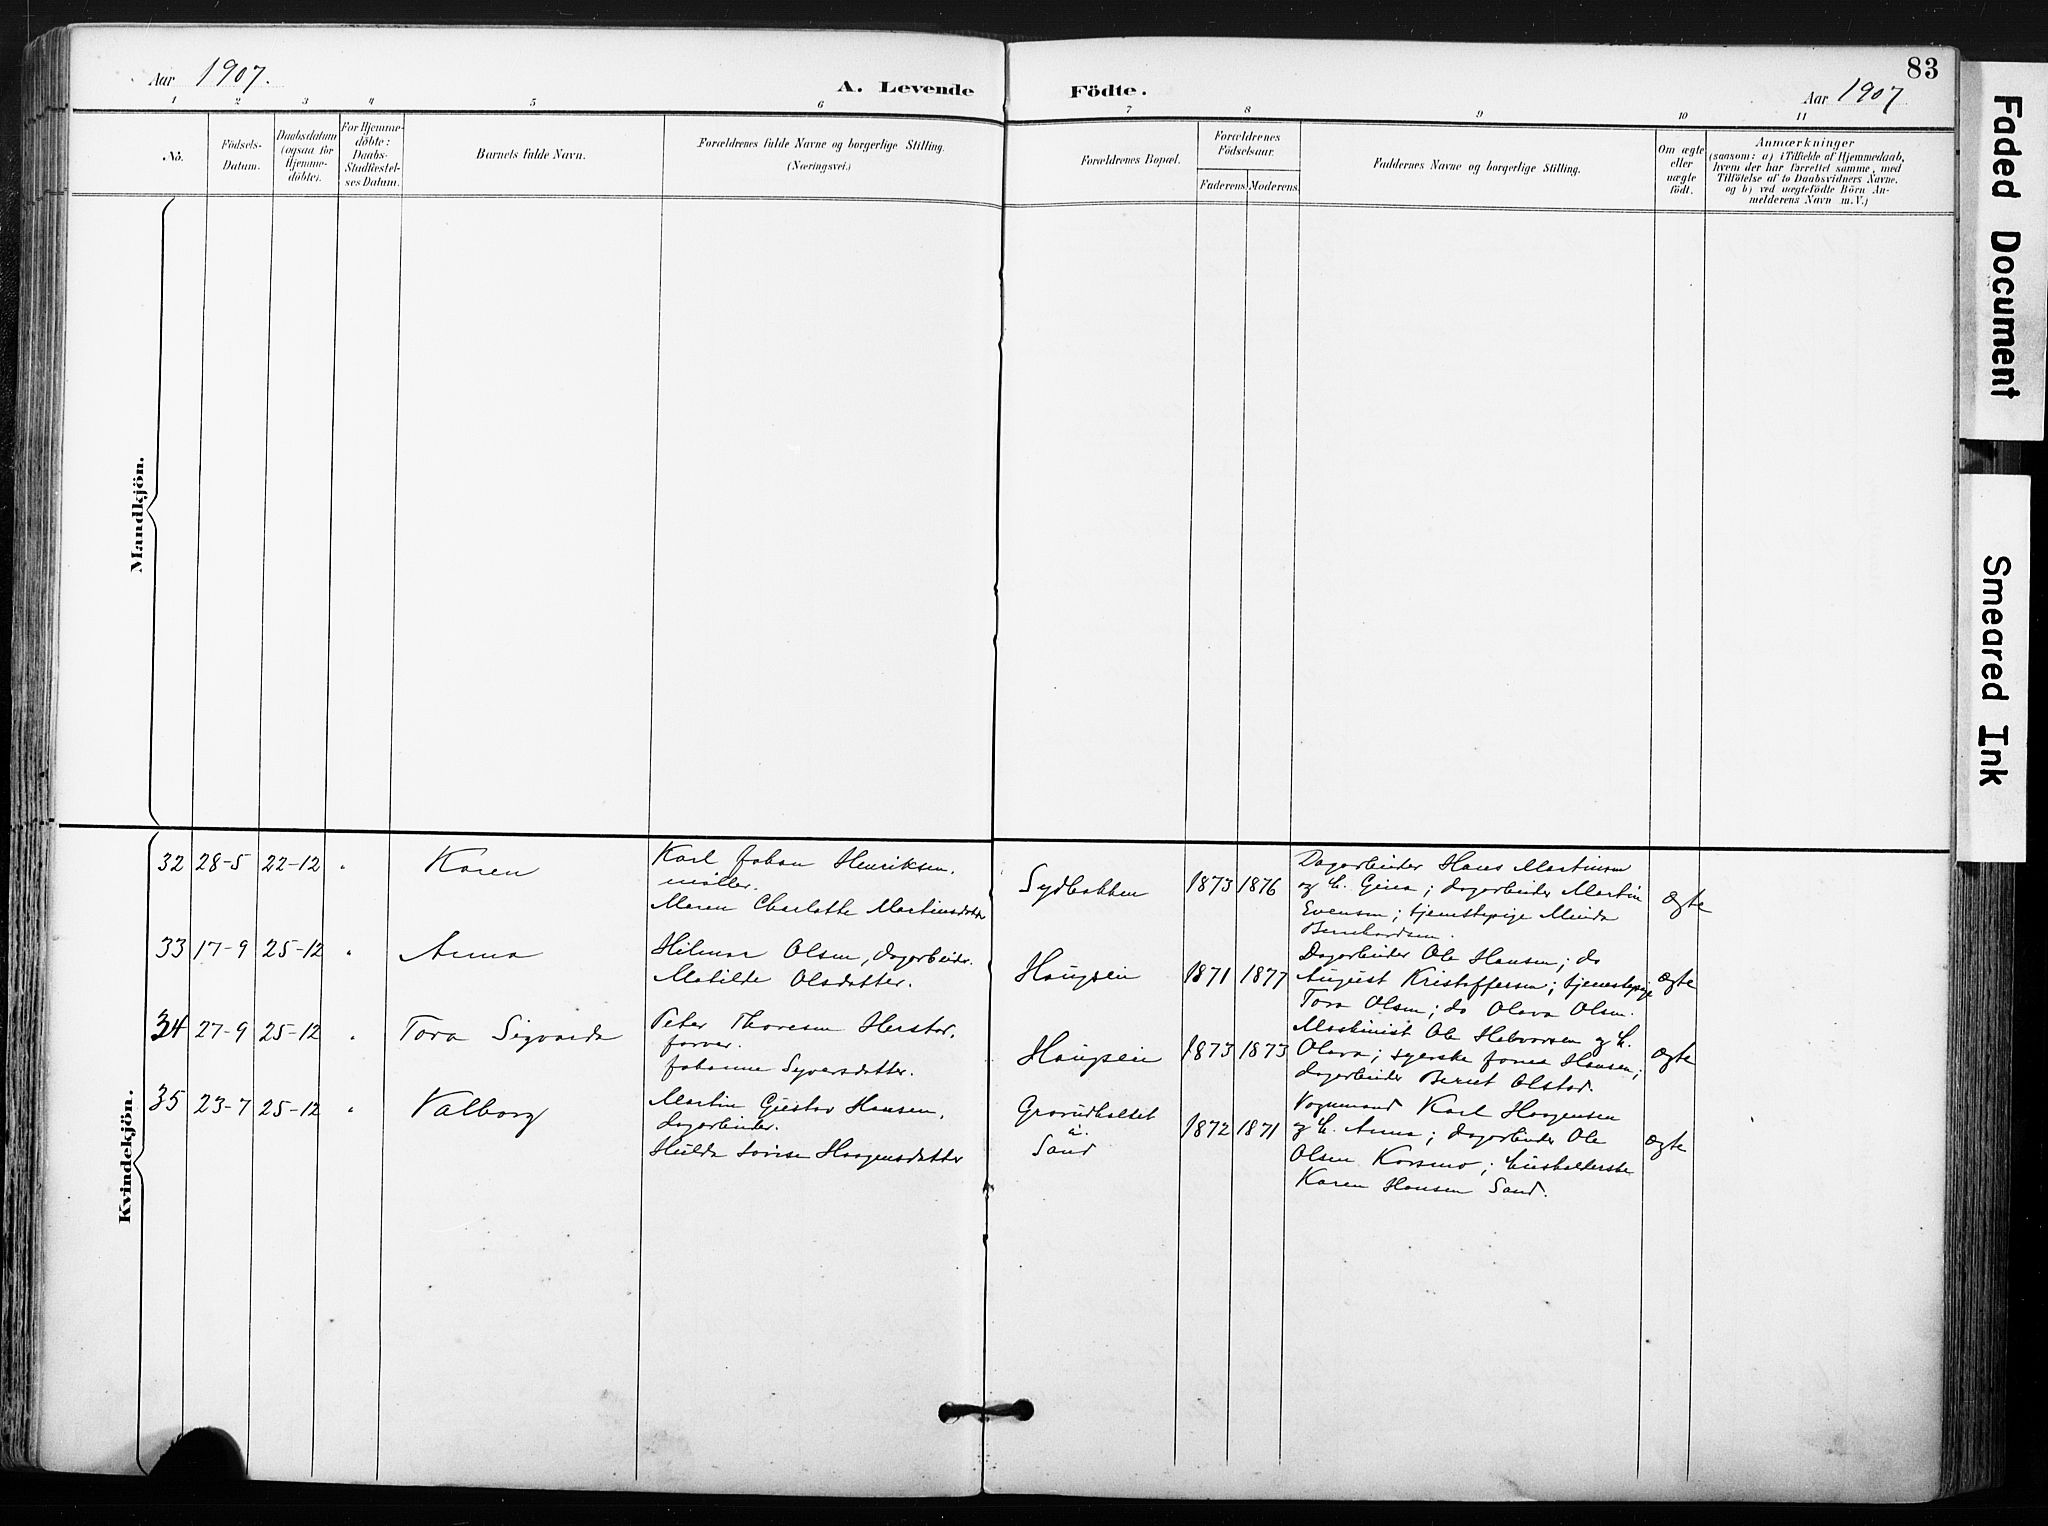 83
Aar 1907.
A. Levende Födte.
Aar 1907
1 2 3 4 5 6 7 8 9 10 11
No.
Födsels-Datum.
Daabsdatum (ogsaa for Hjemme-döbte).
For Hjemme-döbte: Daabs-Stadfæstel-ses Datum.
Barnets fulde Navn.
Forældrenes fulde Navne og borgerlige Stilling.
(Næringsvei.)
Forældrenes Bopæl.
Forældrenes Födselsaar.
Faderens. Moderens.
Faddernes Navne og borgerlige Stilling.
Om ægte eller uægte födt.
Anmærkninger
(saasom: a) i Tilfælde af Hjemmedaab,
hvem der har forrettet samme, med
Tilföielse af to Daabsvidners Navne.
og b) ved uægtefödte Börn An-
melderens Navn m.V.)
Mandkjön.
Kvindekjön.
32 28-5 22-12 " Karen
Karl Johan Henriksen,
møller.
Maren Charlotte Martinsdatter
Sydbakken 1873 1876
Dagarbeider Hans Martinsen
og h. Gina; dagarbeider Martin
Evensen; tjenestepige Minda
Bernhardsen.
ægte
33 17-9 25-12 " Anna
Hilmar Olsen, dagarbeider.
Matilde Olsdatter.
Haugsein 1871 1877
Dagarbeider Ole Hansen; do
August Kristoffersen; tjenestepige
Tora Olsen; do Olava Olsen.
ægte
34 27-9 25-12 " Tora Sigvarda
Peter Thoresen Herstad,
farver.
Johanne Syversdatter.
Haugsein 1873 1873
Maskinist Ole Halvorsen og h.
Olava; syerske Hansen;
dagarbeider Bernt Olstad.
ægte
35 23-7 25-12 " Valborg
Martin Gustav Hansen,
dagarbeider.
Hulda Lovise Haagensdatter
Gravudholtet
u.
Sand
1872 1871
Vognmand Karl Haagensen
og h. Anna; dagarbeider Ole
Olsen Korsmo; husholderske
Karen Hansen Sand.
ægte
Faded Document
Smeared Ink